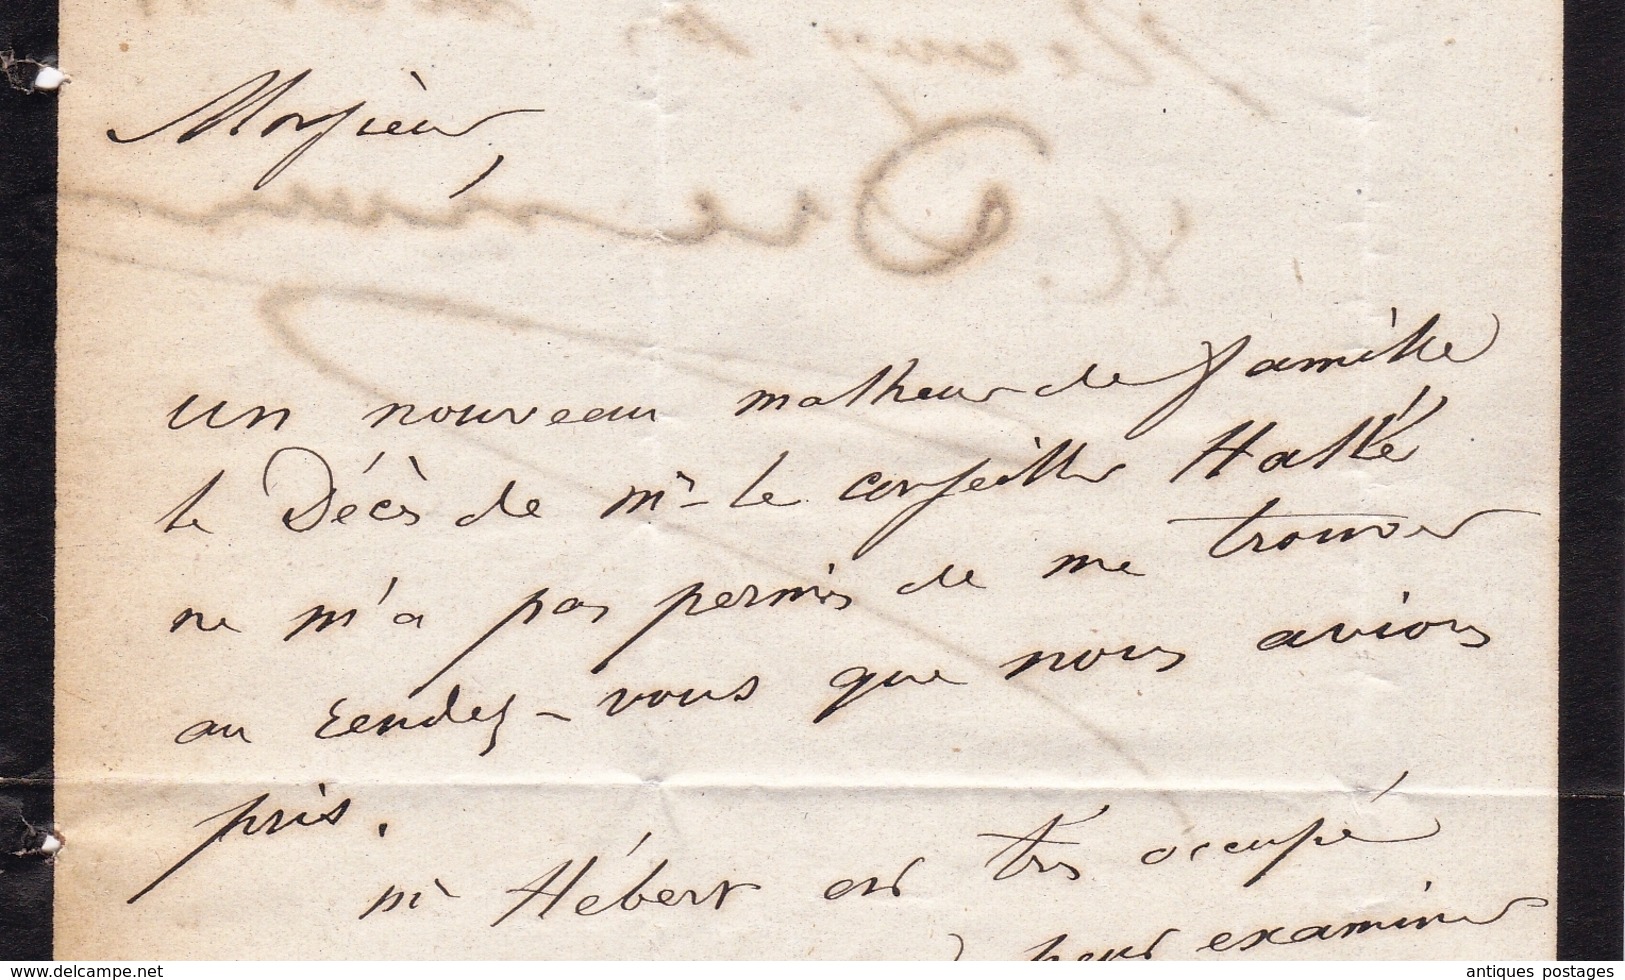 Monsieur,
un nouveau malheur de famille
le Décès de Mr le conseiller Hallé
ne m'a pas permis de me trouver
au rendez-vous que nous avions
pris.
Mr Hébert est très occupé
peut examiner
www.delcampe.net
antiques postages